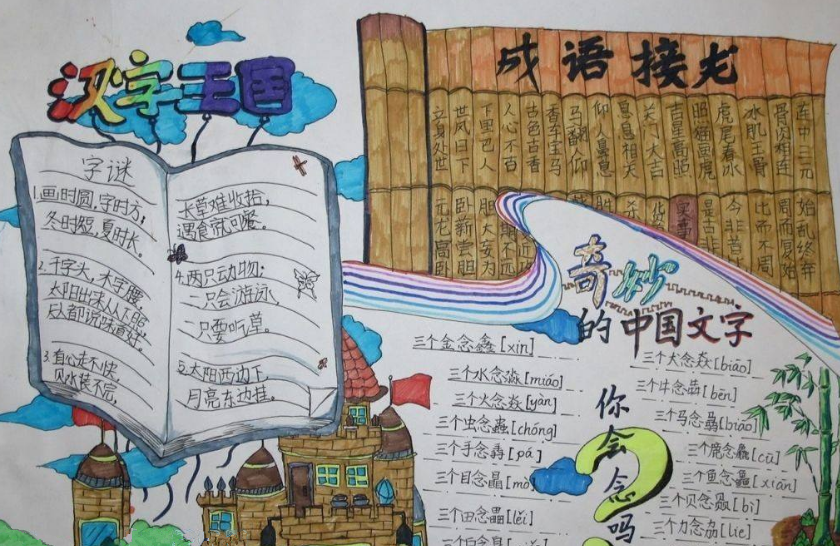 汉字王国
字谜
1.画时圆,字时方,
冬时短,夏时长。
2.千字头,木字腰,
太阳出来从下照,
人人都说味道好。
3.有心走不快,
见水装不完,
长草难收拾,
遇食就可餐。
4.两只动物:
一只会游泳,
一只要吃草。
5.太阳西边下
月亮东边挂。
成语接龙
连中三元
骨肉相连
冰肌玉骨
虎尾春冰
照猫画虎
吉星高照
关门大吉
息息相关
仰人鼻息
人仰马翻
香车宝马
古色古香
人心不古
下里巴人
世风日下
立身处世
始乱终弃
周而复始
比而不周
今非昔比
是古非今
胆大妄为
卧薪尝胆
元龙高卧
奇妙
的中国文字
你会念吗
三个金念鑫[xin]
三个水念淼[miáo]
三个火念焱[yàn]
三个虫念蟲[chóng]
三个手念掱[pá]
三个目念瞐[mò]
三个田念畾[lěi]
三个犬念猋[biāo]
三个牛念犇[bēn]
三个马念骉[biāo]
三个鹿念麤[cū]
三个鱼念鱻[xiān]
三个贝念赑[bì]
三个力念劦[lie]